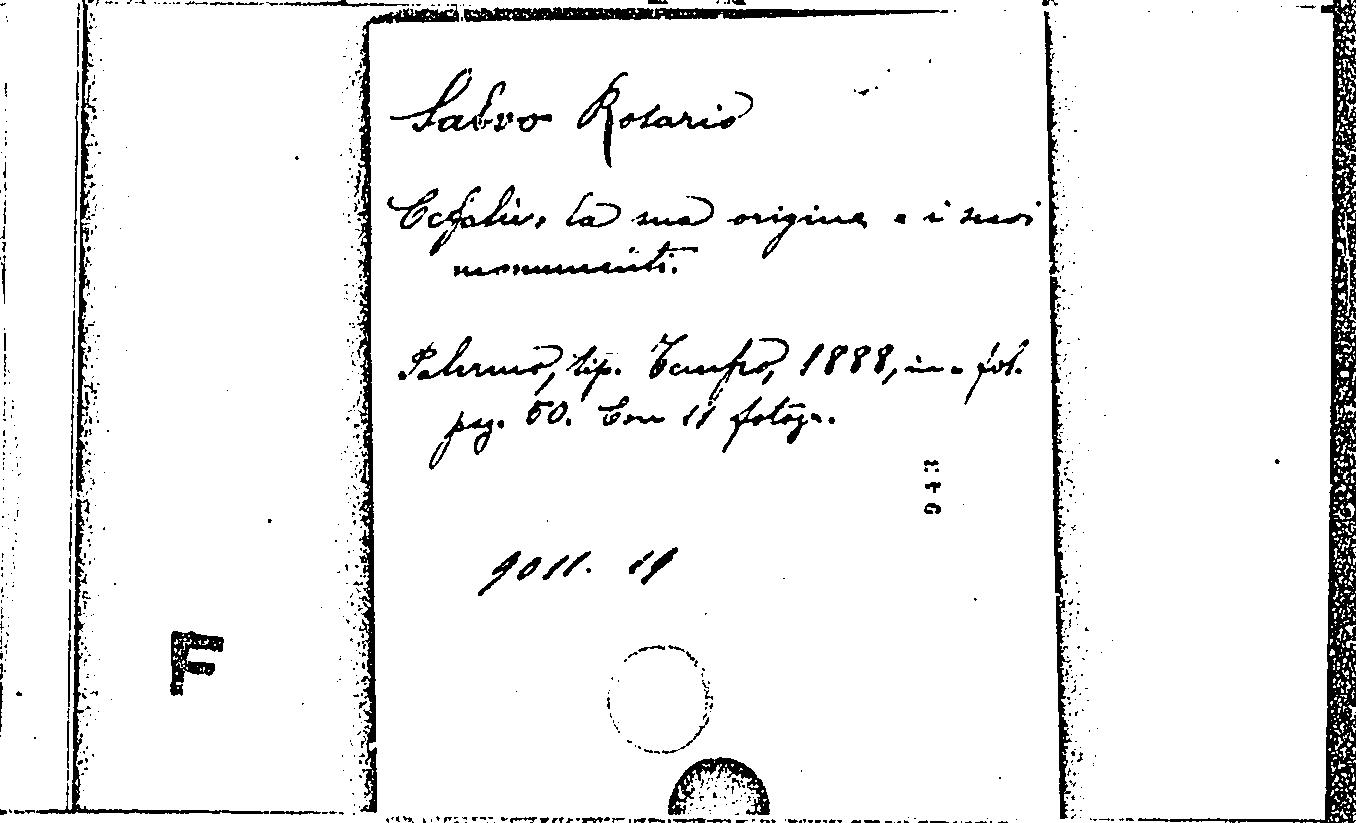 Salvo Rosario
Cefalù, la sua origine e i suoi
monumenti.
Palermo, tip. Tempo, 1888, in-fol.
pag. 50. Con 11 fotogr.
9011. 19
F